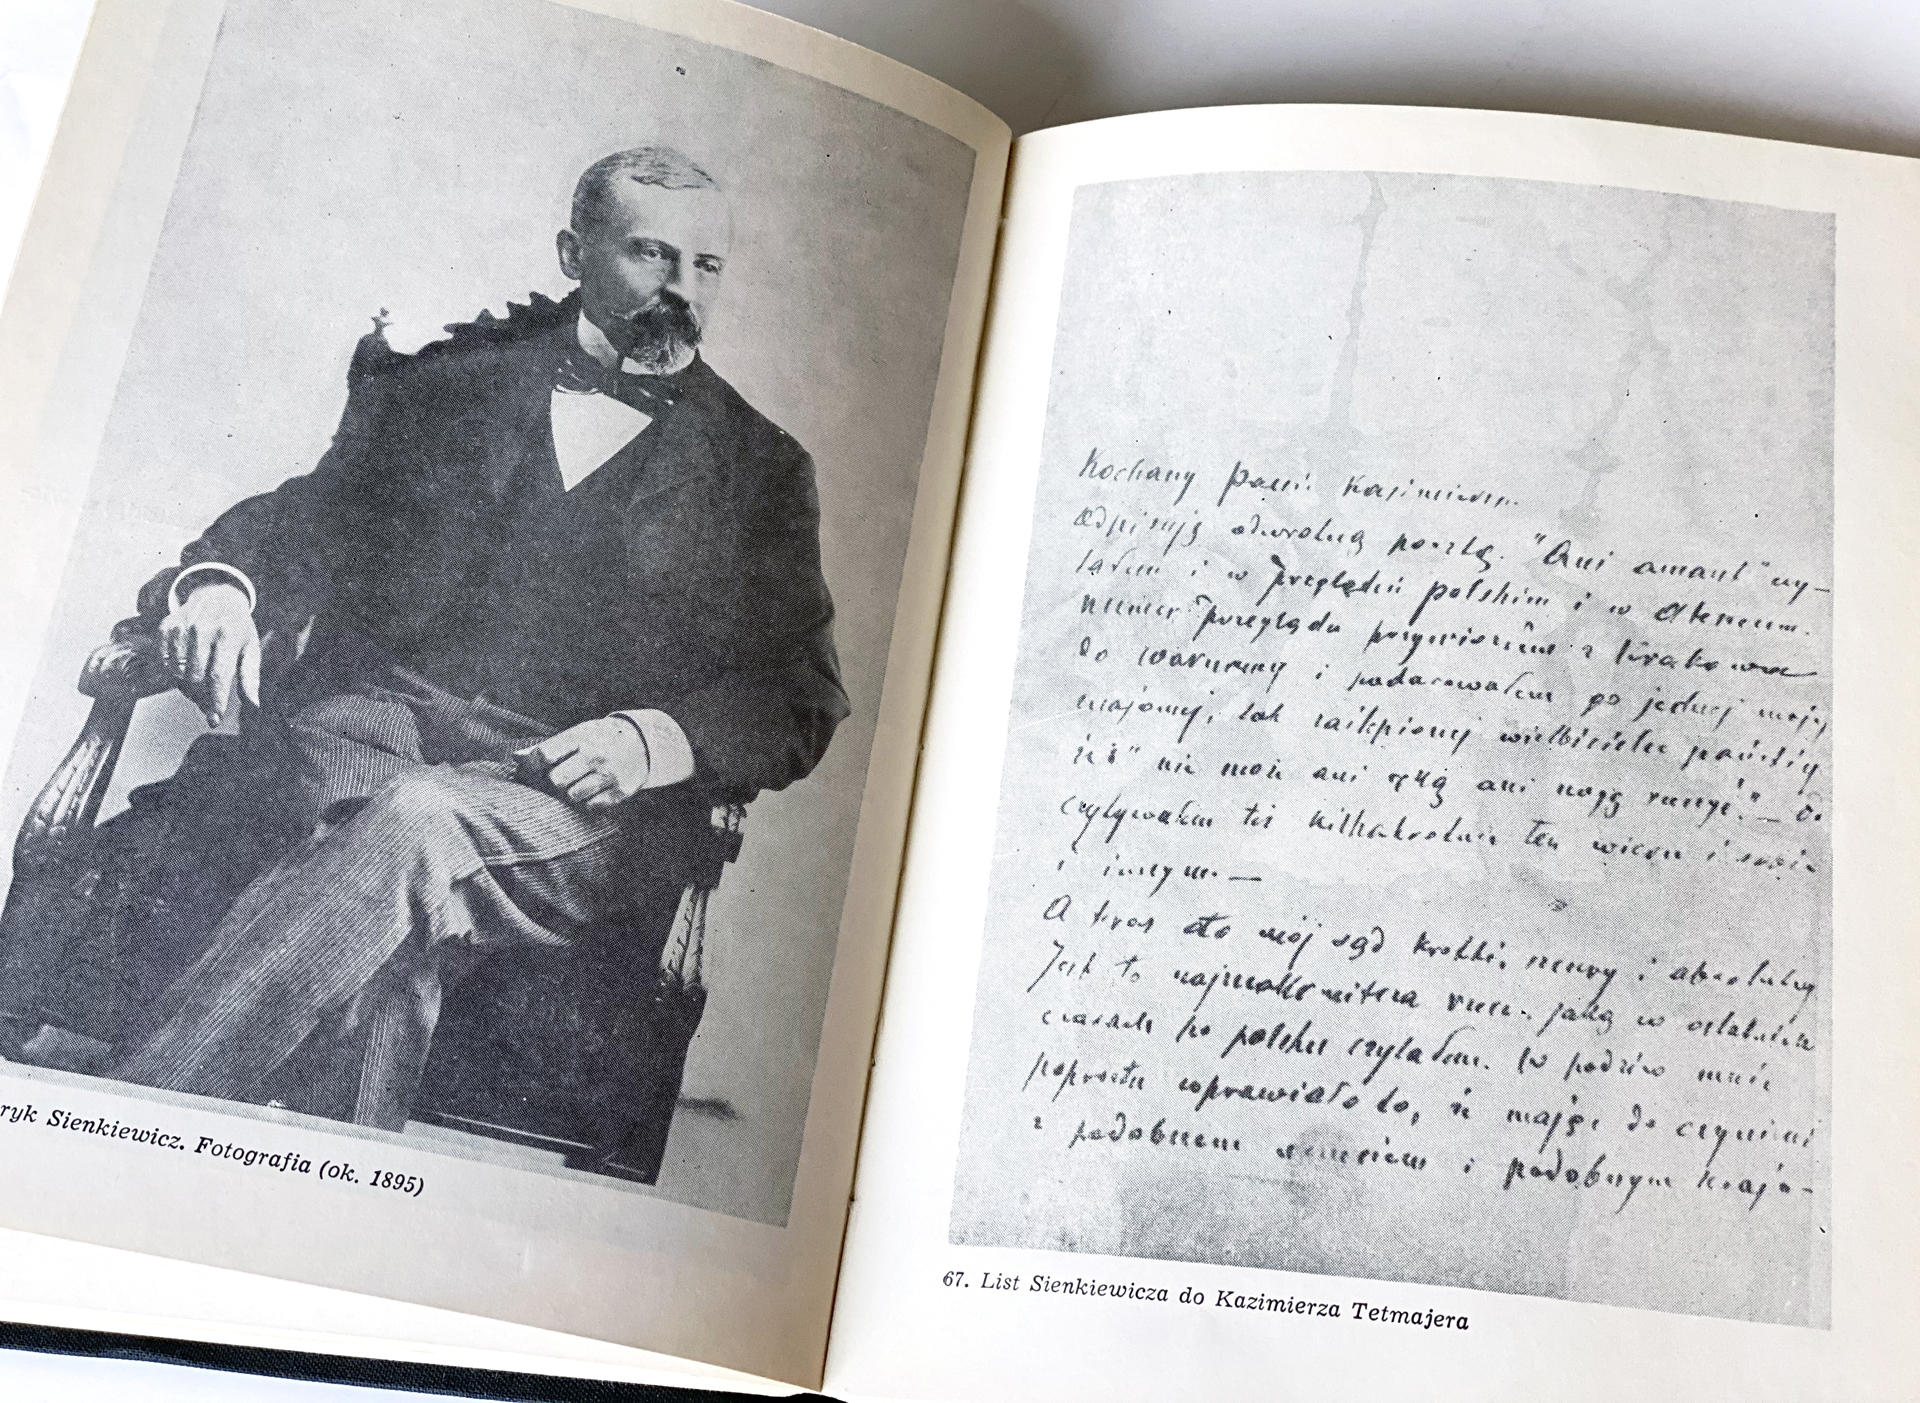 ryk Sienkiewicz. Fotografia (ok. 1895)
Kochany Panie Kazimierzu.
Odpisuję odwrotną pocztą. "Ani amant" czy-
tałem i w Przeglądzie polskim i w Ateneum.
numer Przeglądu przywiozłem z Krakowa
do Warszawy i podarowałem go jednej mojej
znajomej, tak zaślepionej wielbicielce
iż" nie może ani ręką ani nogą ruszyć." —
czytywałem też kilkakrotnie ten wiersz i sobie
i innym. —
A teraz oto mój sąd krótki, szczery i absolutny
Jest to najznakomitsza rzecz, jaką w ostatnich
czasach po polsku czytałem. W podziw mnie
poprostu wprawiało to, iż mając do czynienia
z podobnem i podobnym
67. List Sienkiewicza do Kazimierza Tetmajera